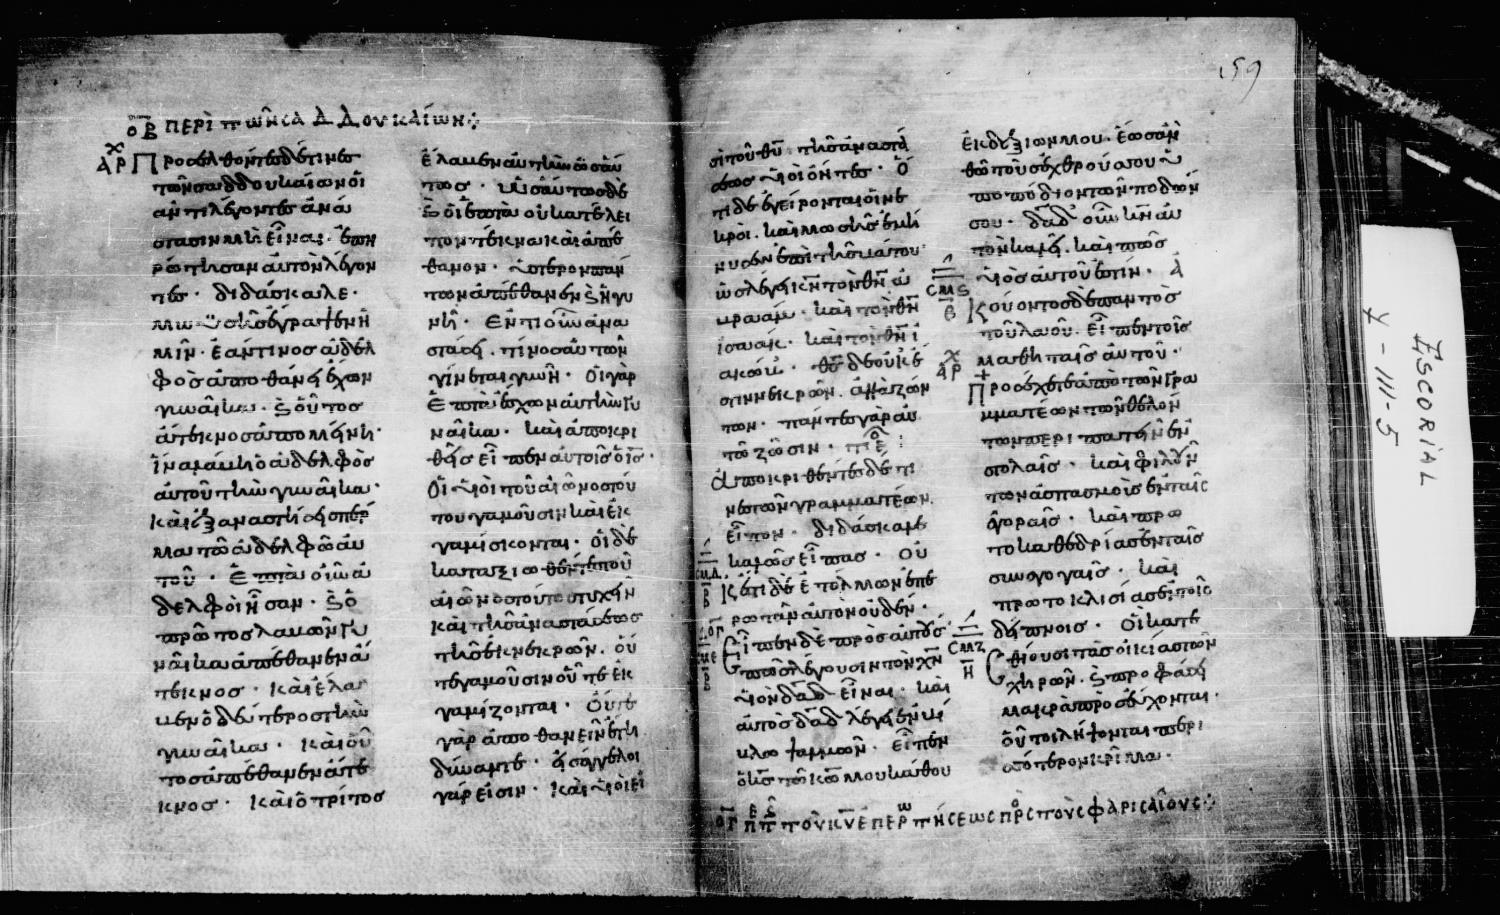 οβ περὶ τῶν σαδδουκαίων
ΑΡΧ Προσελθόντες δέ τινες
τῶν σαδδουκαίων οἱ
ἀντιλέγοντες ἀνά
στασιν μὴ εἶναι· ἐπη
ρώτησαν αὐτὸν λέγον
τες· διδάσκαλε·
μωϋσῆς ἔγραψεν ἡ
μῖν· ἐάν τινος ἀδελ
φὸς ἀποθάνῃ ἔχων
γυναῖκα· ϗ οὗτος
ἄτεκνος ἀποθάνῃ·
ἵνα λάβῃ ὁ ἀδελφὸς
αὐτοῦ τὴν γυναῖκα·
καὶ ἐξαναστήσῃ σπέρ
μα τῷ ἀδελφῷ αὐ
τοῦ· ἑπτὰ οὖν ἀ
δελφοὶ ἦσαν· ϗ ὁ
πρῶτος λαβὼν γυ
ναῖκα ἀπέθανεν ἄ
τεκνος· καὶ ἔλα
βεν ὁ δεύτερος τὴν
γυναῖκα· καὶ οὗ
τος ἀπέθανεν ἄτε
κνος· καὶ ὁ τρίτος
ἔλαβεν αὐτὴν ὡσαύ
τως· ὡσαύτως δὲ
ϗ οἱ ἑπτὰ οὐ κατέλει
πον τέκνα καὶ ἀπέ
θανον· ὕστερον πάν
των ἀπέθανεν ϗ ἡ γυ
νή· ἐν τῇ οὖν ἀνα
στάσει· τίνος αὐτῶν
γίνεται γυνή· οἱ γὰρ
ἑπτὰ ἔσχον αὐτὴν γυ
ναῖκα· καὶ ἀποκρι
θεὶς εἶπεν αὐτοῖς ὁ ις·
οἱ υἱοὶ τοῦ αἰῶνος τού
του γαμοῦσιν καὶ ἐκ
γαμίσκονται· οἱ δὲ
καταξιωθέντες τοῦ
αἰῶνος τούτου τυχεῖν
καὶ τῆς ἀναστάσεως
τῆς ἐκ νεκρῶν. οὔ
τε γαμοῦσιν οὔτε ἐκ
γαμίζονται· οὔτε
γὰρ ἀποθανεῖν ἔτι
δύναντε· ἰσάγγελοι
γάρ εἰσιν· καὶ υἱοί εἰ
159
σι τοῦ θυ τῆς ἀναστά
σεως υἱοὶ ὄντες· ὅ
τι δὲ ἐγείρονται οἱ νε
κροί. καὶ μωσῆς ἐμή
νυσεν ἐπὶ τῆς βάτου·
ὡς λέγει κν τὸν θν ἀ
βραάμ· καὶ τὸν θν
ἰσαάκ· καὶ τὸν θν ἰ
ακώβ· θς δὲ οὐκ ἔ
στιν νεκρῶν. ἀλλὰ ζών
των· πάντες γὰρ αὐ
τῷ ζῶσιν·
Ἀποκριθέντες δέ τι
νες τῶν γραμματέων
εἶπον· διδάσκαλε
καλῶς εἶπας· οὐ
κέτι δὲ ἐτόλμων ἐπε
ρωτᾶν αὐτὸν οὐδέν·
Εἶπεν δὲ πρὸς αὐτούς
πῶς λέγουσιν τὸν χν
υἱὸν δαδ εἶναι· καὶ
αὐτὸς δαδ λέγει ἐν βί
βλω ψαλμῶν· εἶπεν
ὁ κς τῷ κω μου κάθου
ἐκ δεξιῶν μου· ἕως ἂν
θῶ τοὺς ἐχθρούς σου ὑ
ποπόδιον τῶν ποδῶν
σου· δαδ οὖν κν αὐ
τὸν καλεῖ. καὶ πῶς
υἱὸς αὐτοῦ ἐστίν· Ἀ
κούοντος δὲ παντὸς
τοῦ λαοῦ. εἶπεν τοῖς
μαθηταῖς αὐτοῦ·
ΑΡΧ Προσέχετε ἀπὸ τῶν γρα
μματέων τῶν θελόν
των περιπατεῖν ἐν
στολαῖς· καὶ φιλούν
των ἀσπασμοὺς ἐν ταῖς
ἀγοραῖς· καὶ πρω
τοκαθεδρίας ἐν ταῖς
συναγωγαῖς· καὶ
πρωτοκλισίας ἐν τοῖς
δείπνοις· οἳ κατε
σθίουσι τὰς οἰκίας τῶν
χηρῶν. ϗ προφάσει
μακρὰ προσεύχονται·
οὗτοι λήψονται περι
σσότερον κρίμα·
ογ τοῦ κυ ἐπερωτήσεως πρὸς τοὺς φαρισαίους
ESCORIAL
Y-III-5